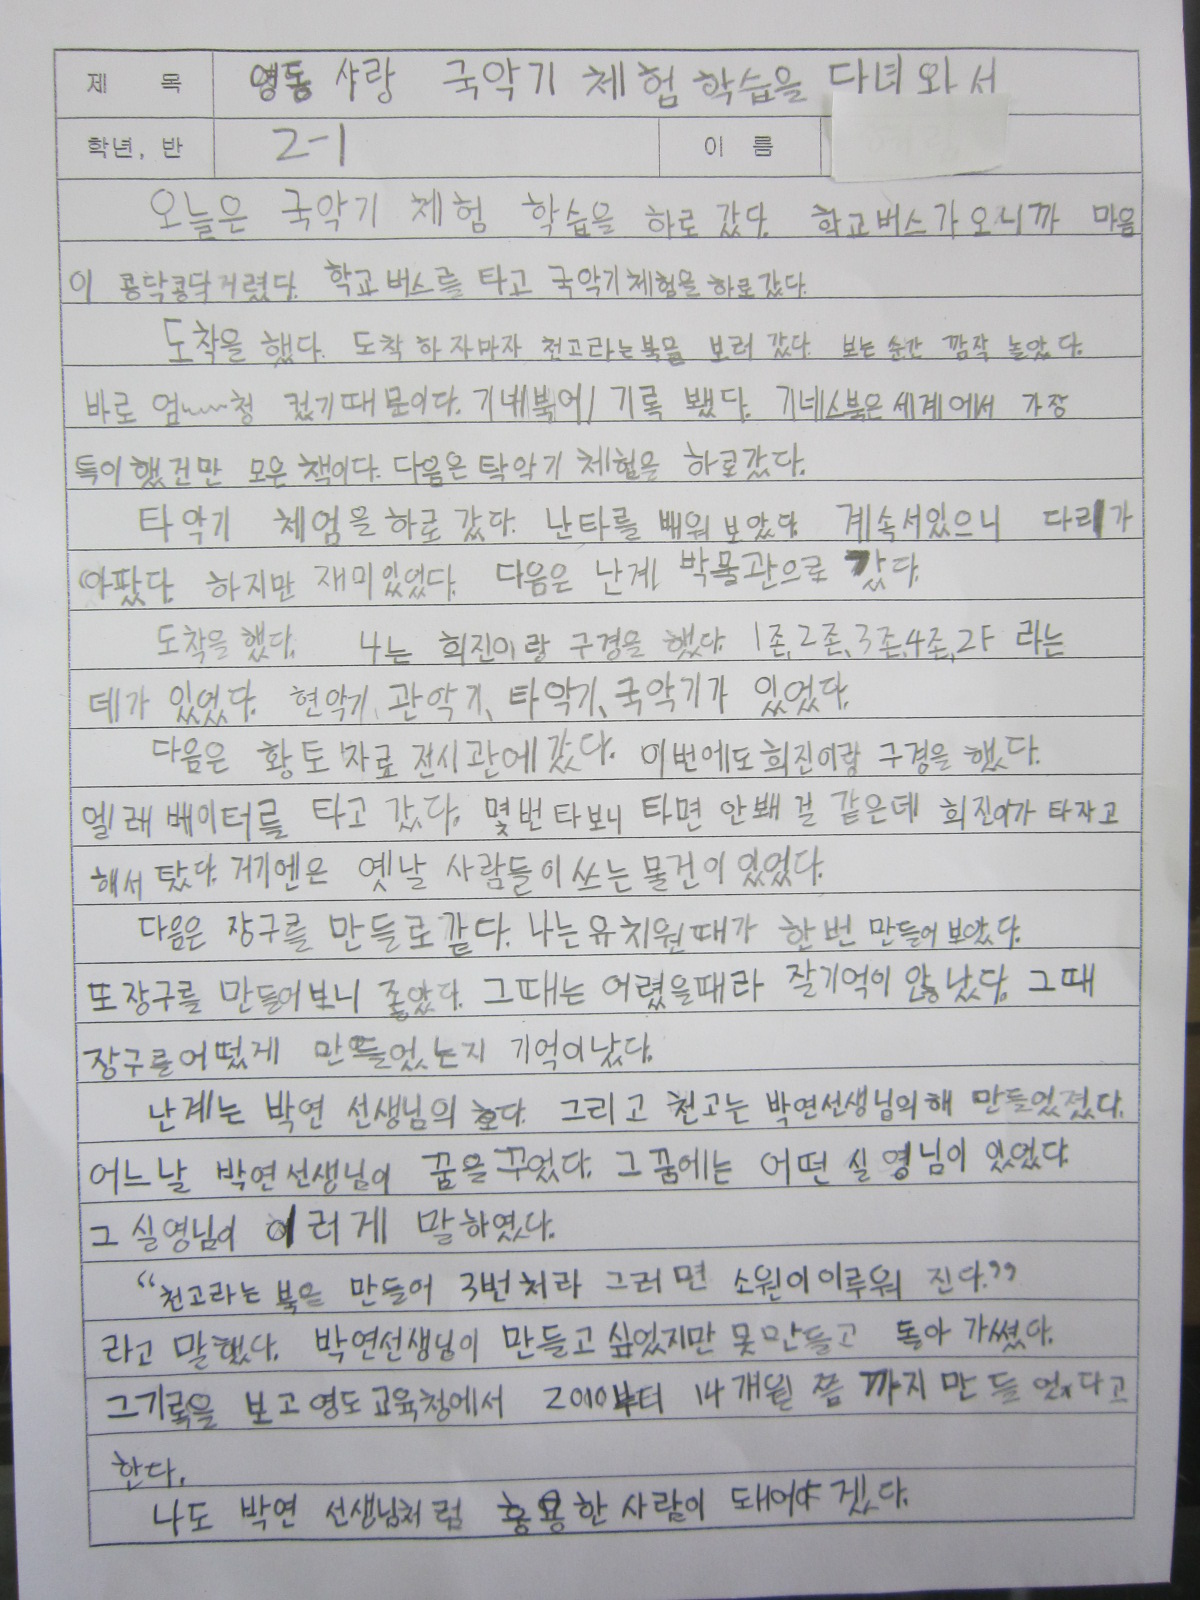 제 목 영동 사랑 국악기 체험 학습을 다녀와서
학년, 반 2-1 이 름
오늘은 국악기 체험 학습을 하로 갔다. 학교버스가 오니까 마음
이 콩닥콩닥거렸다. 학교버스를 타고 국악기체험을 하로갔다.
도착을 했다. 도착 하자마자 천고라는북을 보러 갔다. 보는 순간 깜작 놀았다.
바로 엄~청 컸기때문이다. 기네북에 기록 됐다. 기네스북은세계에서 가장
특이했건만 모은 책이다. 다음은 탁악기 체험을 하로갔다.
타악기 체엄을하로 갔다. 난타를 배워 보았다. 계속서있으니 다리가
아팠다. 하지만 재미있었다. 다음은 난계 박물관으로 갔다.
도착을 했다. 나는 희진이랑 구경을 했다. 1존,2존,3존,4존,2F 라는
데가 있었다. 현악기, 관악기, 타악기, 국악기가 있었다.
다음은 황토 자료 전시관에갔다. 이번에도희진이랑 구경을 했다.
엘래베이터를 타고 갔다. 몇번타보니 타면 안돼 걸 같은데 희진이가 타자고
해서 탔다. 거기엔은 옛날 사람들이쓰는물건이있었다.
다음은 장구를 만들로같다. 나는유치원때가 한번 만들어보았다.
또장구를 만들어보니 좋았다. 그때는 어렸을때라 잘기억이 않났다. 그때
장구를어떴게 만들었는지 기억이났다.
난계는 박연 선생님의 호다. 그리고 천고는 박연선생님의해 만들었졌다.
어느날 박연선생님이 꿈을꾸었다. 그꿈에는 어떤 실영님이 있었다.
그 실영님이 이러게 말하였다.
“천고라는 북을 만들어 3번쳐라 그러면 소원이이루워 진다.”
라고 말했다. 박연선생님이 만들고 싶었지만못만들고 돌아 가쎴다.
그기록을 보고영도교육청에서 2010부터 14개월 쯤 까지만들었다고
한다.
나도 박연 선생님처럼 훙융한사람이 돼어야겠다.